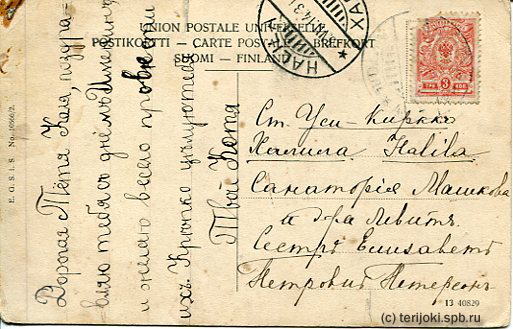 UNION POSTALE UNIVERSELLE
POSTIKORTTI – CARTE POSTALE – BREFKORT
SUOMI – FINLAND
Дорогая Тётя Катя, поздра-
вляю тебя съ днёмъ Имянинъ
и желаю весело провести
ихъ. Крѣпко цѣлую тебя
Твой Котя
Ст. Уси-Кирко
Халила Halila
Санаторія Машкова
и д-ра Левитъ.
Сестрѣ Елисаветѣ
Петровнѣ Петерсонъ
3
E. G. S. i. S. No. 10666/2.
13 40829
(c) terijoki.spb.ru